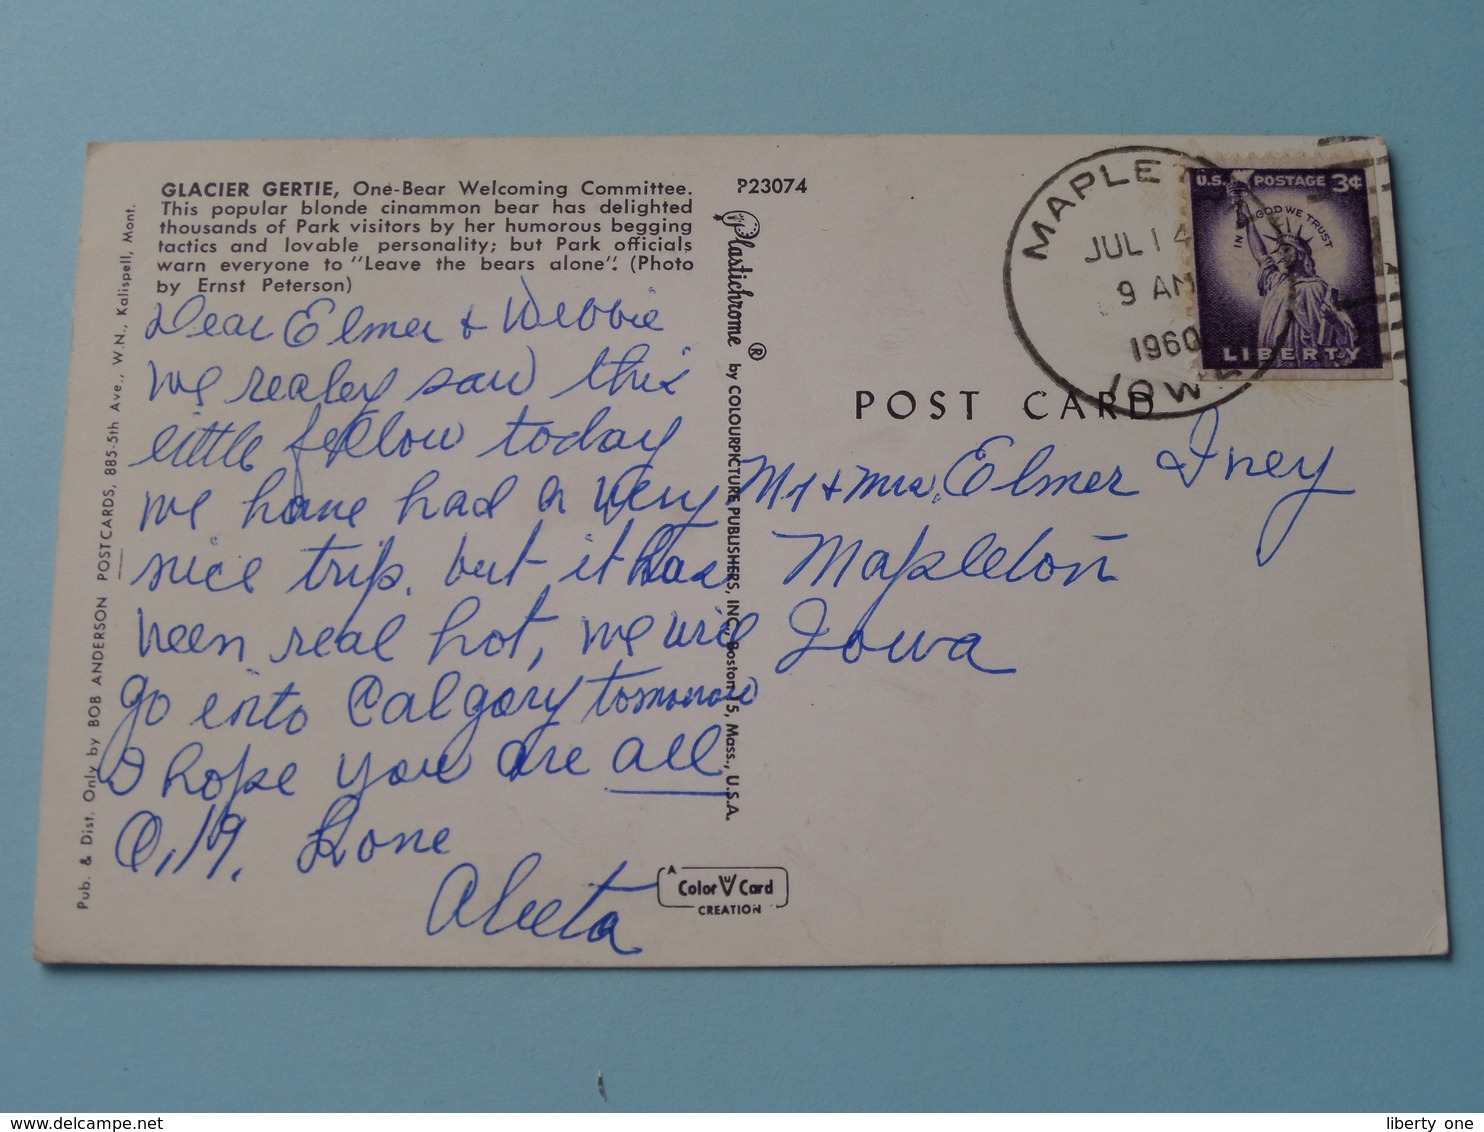 GLACIER GERTIE, One-Bear Welcoming Committee.
This popular blonde cinammon bear has delighted
thousands of Park visitors by her humorous begging
tactics and lovable personality; but Park officials
warn everyone to "Leave the bears alone". (Photo
by Ernst Peterson)
Dear Elmer & Webbie
we realey saw this
little fellow today
we have had a very
nice trip. but it has
been real hot, we will
go into Calgary tomorrow
I hope you are all
O.K. Love
Aleeta
Pub. & Dist. Only by BOB ANDERSON POSTCARDS, 885-5th Ave., W.N., Kalispell, Mont.
P23074
Plastichrome ® by COLOURPICTURE PUBLISHERS, INC., Boston 15, Mass., U.S.A.
A
Color W Card
CREATION
POST CARD
MAPLE
JUL 14
9 AM
1960
IOWA
U.S. POSTAGE 3¢
IN GOD WE TRUST
LIBERTY
Mr & Mrs. Elmer Iney
Mapleton
Iowa
liberty one